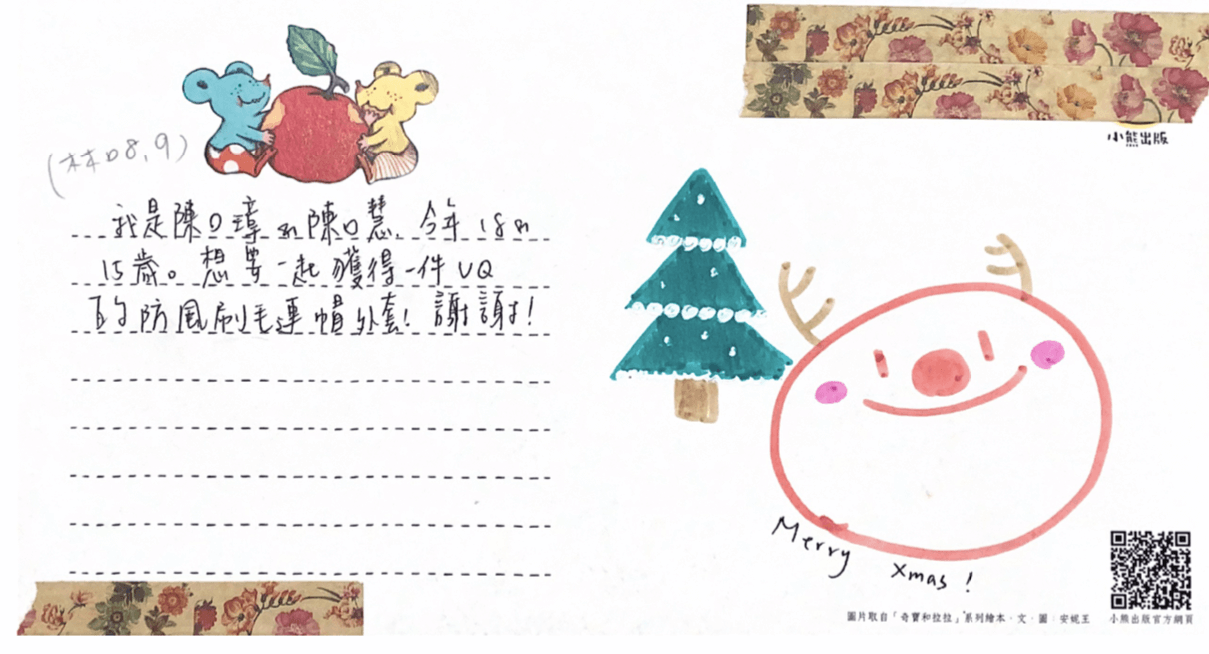 (林口8,9)
我是陳口瑋和陳口慧. 今年18和
15歲。想要一起獲得一件UQ
的防風刷毛連帽外套! 謝謝!
小熊出版
Merry
xmas !
圖片取自「奇寶和拉拉」系列繪本‧文‧圖:安妮王
小熊出版官方網頁